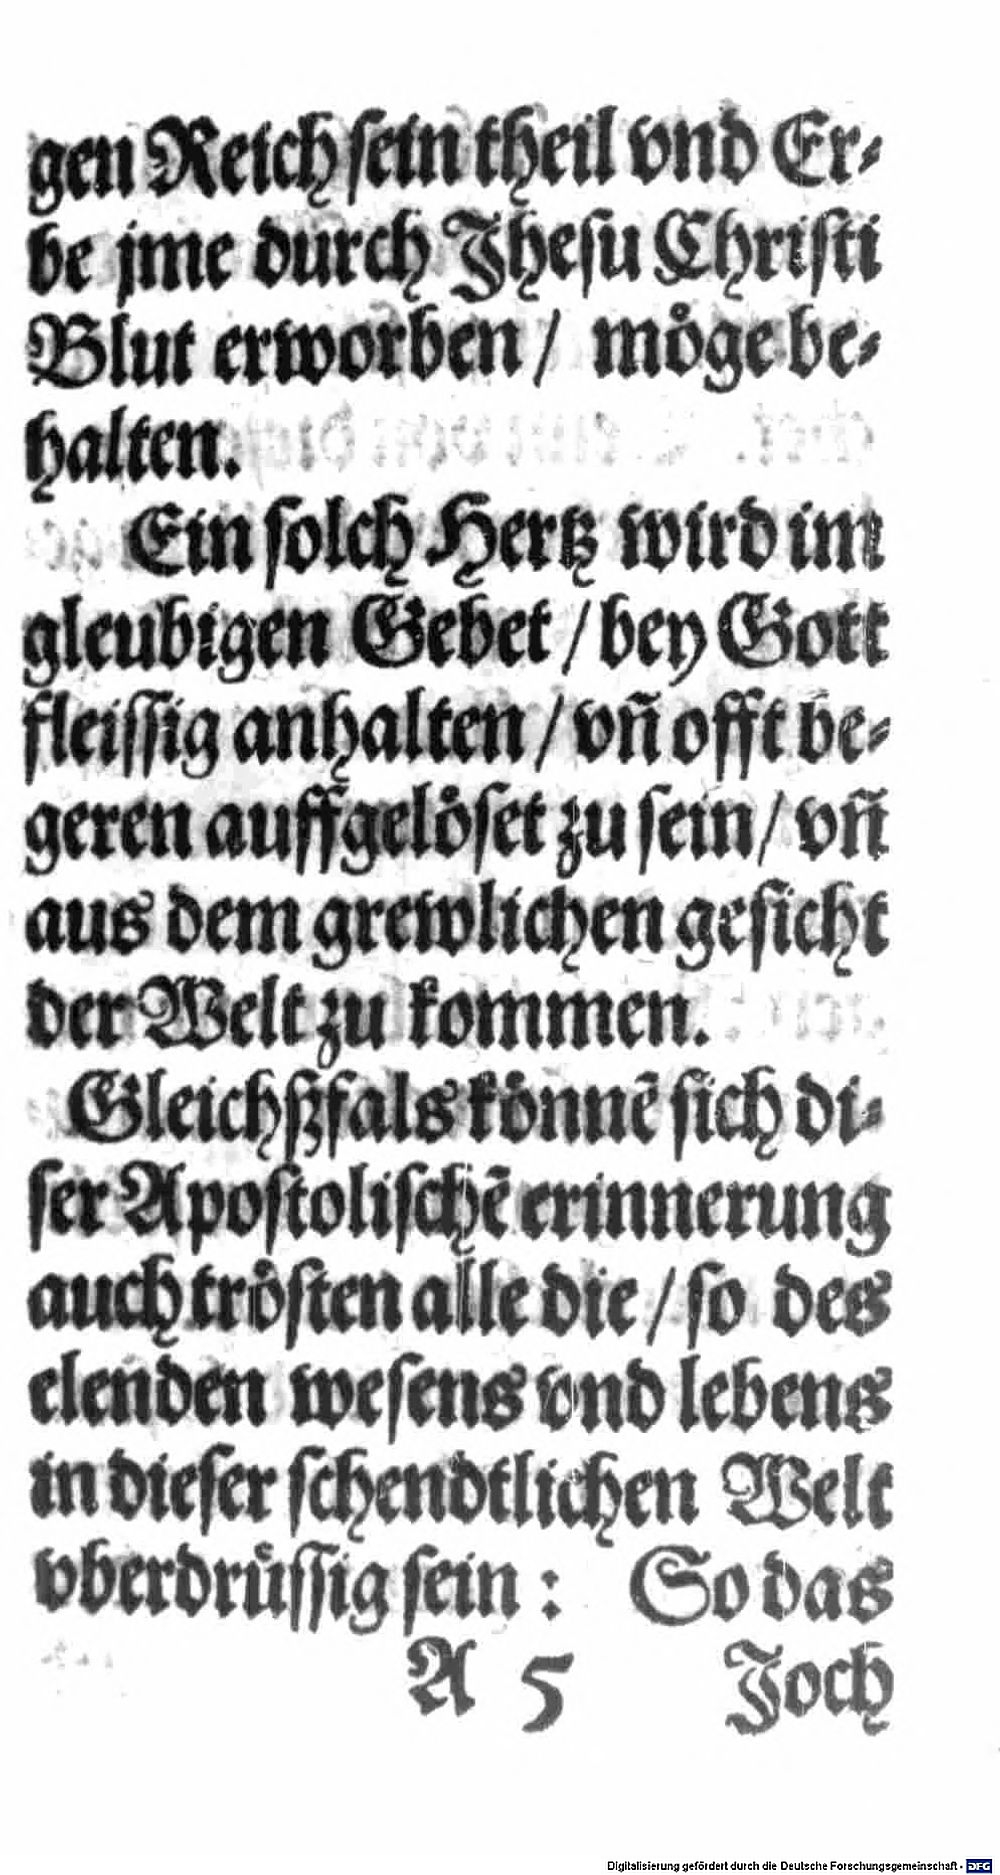 gen Reich ſein theil vnd Er⸗
be jme durch Jheſu Chriſti
Blut erworben / mo̊ge be⸗
halten.
Ein ſolch Hertz wird im
gleubigen Gebet / bey Gott
fleiſſig anhalten / vn̄ offt be⸗
geren auffgelo̊ſet zu ſein / vn̄
aus dem grewlichen geſicht
der Welt zu kommen.
Gleichſzfals ko̊nnē ſich di⸗
ſer Apoſtoliſchē erinnerung
auch tro̊ſten alle die / ſo des
elenden weſens vnd lebens
in dieſer ſchendtlichen Welt
vberdrůſſig ſein : So das
A 5 Joch
Digitalisierung gefördert durch die Deutsche Forschungsgemeinschaft - DFG